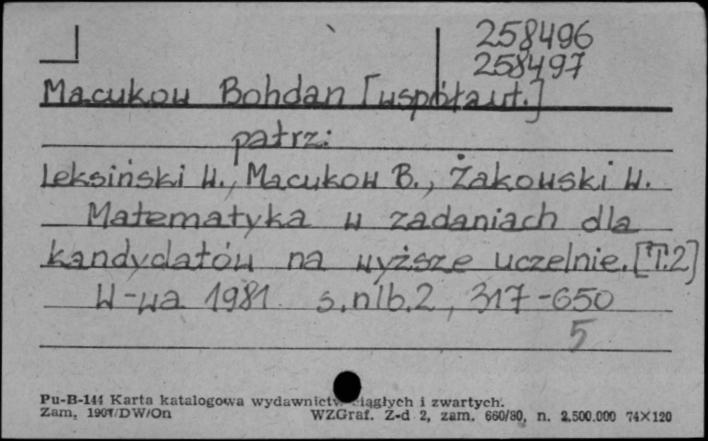 258496
258497
Macukow Bohdan [współaut.]
patrz:
Leksiński W., Macukow B., Żakowski W.
Matematyka w zadaniach dla
kandydatów na wyższe uczelnie. [T.2]
W-wa 1981 s. nlb. 2, 317-650
5
Pu-B-144 Karta katalogowa wydawnictw ciągłych i zwartych.
Zam. 1907/DW/On WZGraf. Z-d 2, zam. 660/80, n. 2.500.000 74×120